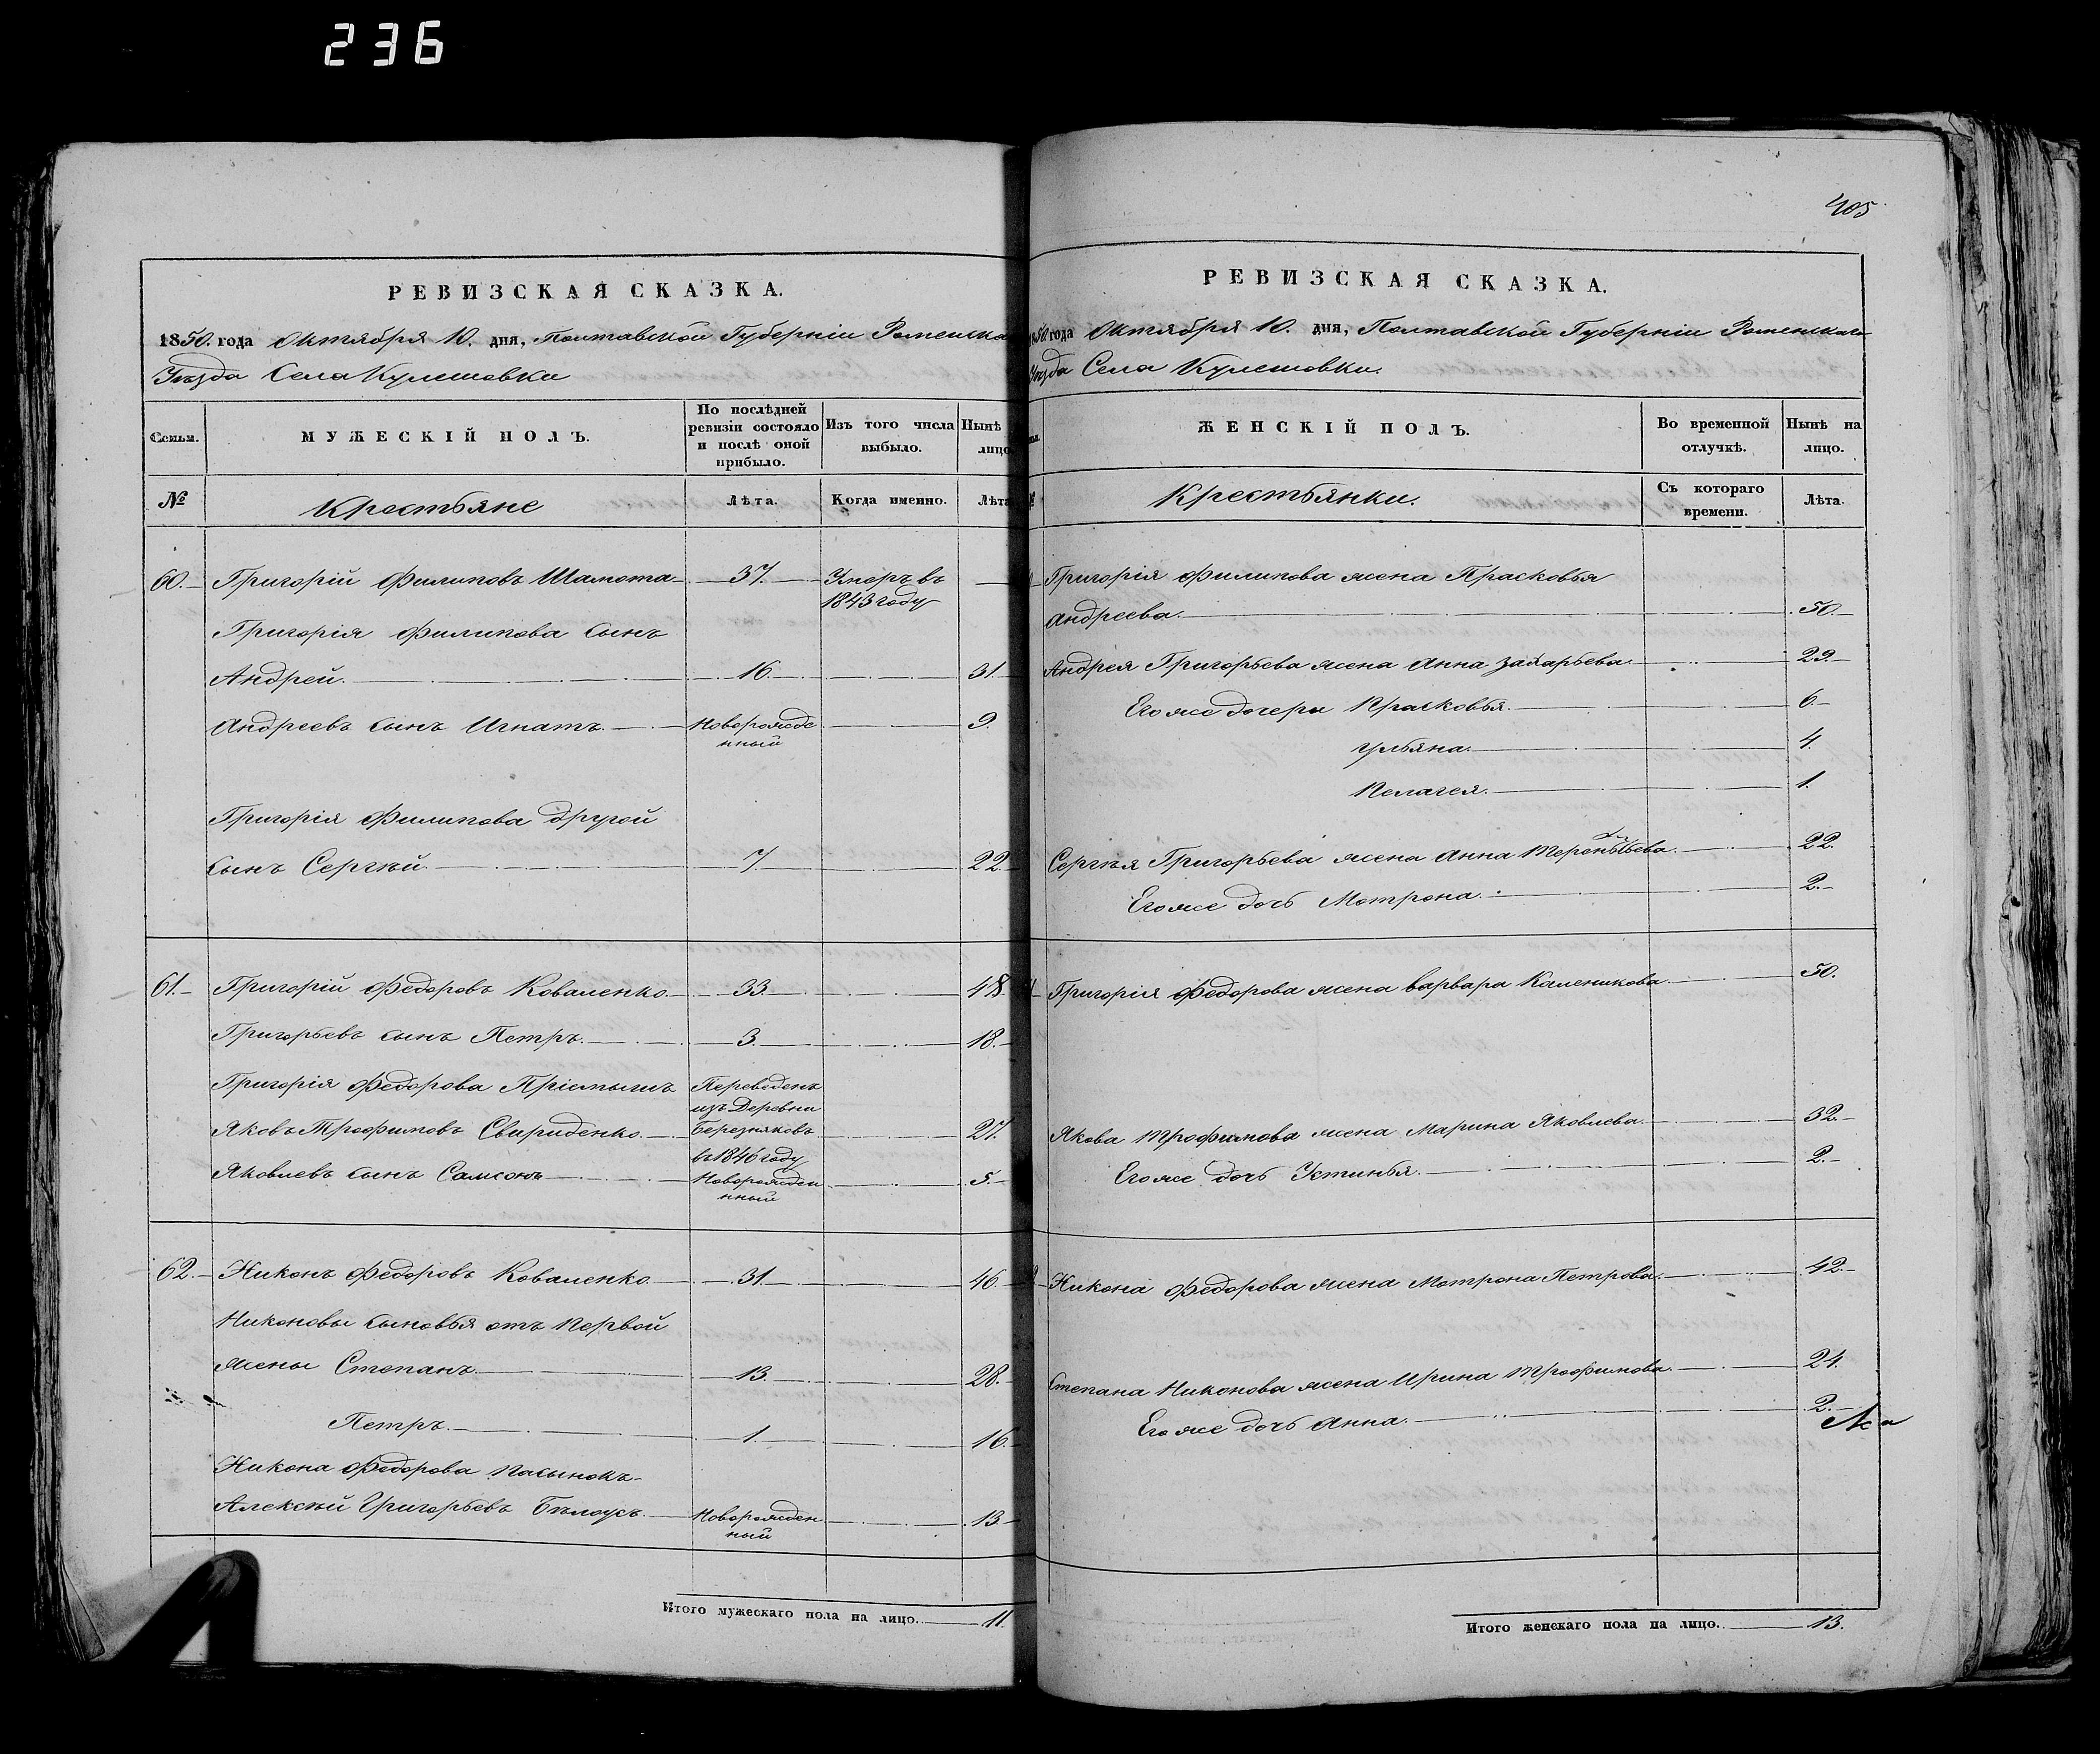 236
РЕВИЗСКАЯ СКАЗКА.
1850. года Октября 10. дня, Полтавской Губерніи Роменска
Уѣзда Села Кулешовки
Семьи.
МУЖЕСКІЙ ПОЛЪ.
По послѣдней
ревизіи состояло
и послѣ оной
прибыло.
Изъ того числа
выбыло.
Нынѣ
лицо
№
Крестьяне
Лѣта.
Когда именно.
Лѣта
60. Григорій Филиповъ Шамота 37. Умеръ въ
1843 году
Григорія Филипова сынъ
Андрей. 16. 31.
Андреевъ сынъ Игнатъ. Новорожде 9.
нный
Григорія Филипова другой
сынъ Сергѣй. 7. 22.
61. Григорій Федоровъ Коваленко. 33. 48
Григорьевъ сынъ Петръ. 3. 18.
Григорія Федорова Пріемышъ Переведенъ
изъ Деревни
Яковъ Трофимовъ Свириденко. Березняковъ 27.
въ 1846 году
Яковлевъ сынъ Самсонъ Новорожден 5.
нный
62. Никонъ Федоровъ Коваленко 31. 46.
Никоновы сыновья отъ первой
жены Степанъ. 13. 28.
Петръ. 1. 16.
Никона Федорова пасынокъ
Алексѣй Григорьевъ Бѣлоусъ. Новорожден 13.
ный
Итого мужескаго пола на лицо. 11.
405
РЕВИЗСКАЯ СКАЗКА.
1850 года Октября 10. дня, Полтавской Губерніи Роменскаго
Уѣзда Села Кулешовки.
ЖЕНСКІЙ ПОЛЪ.
Во временной
отлучкѣ.
Нынѣ на
лицо.
Крестьянки.
Съ котораго
времени.
Лѣта.
Григорія Филипова жена Прасковья
Андреева. 50.
Андрея Григорьева жена Анна Захарьева. 29.
Его же дочери Прасковья. 6.
Ульяна. 4.
Пелагея. 1.
Сергѣя Григорьева жена Анна Терентьева. 22.
Его же дочь Мотрона. 2.
Григорія Федорова жена Варвара Каленикова. 50.
Якова Трофимова жена Марина Яковлева. 32.
Его же дочь Устинья. 2.
Никона Федорова жена Мотрона Петрова. 42.
Степана Никонова жена Ирина Трофимова. 24.
Его же дочь Анна. 2.
Итого женскаго пола на лицо. 13.